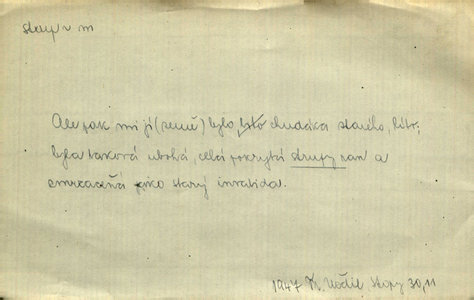 strup m
Ale pak mi jí (země) bylo, chudáka starého, líto;
byla taková ubohá, celá pokrytá strupy ran a
zmrzačená jako starý invalida.
1947 Fr. Kožík, Stopy 30, 11